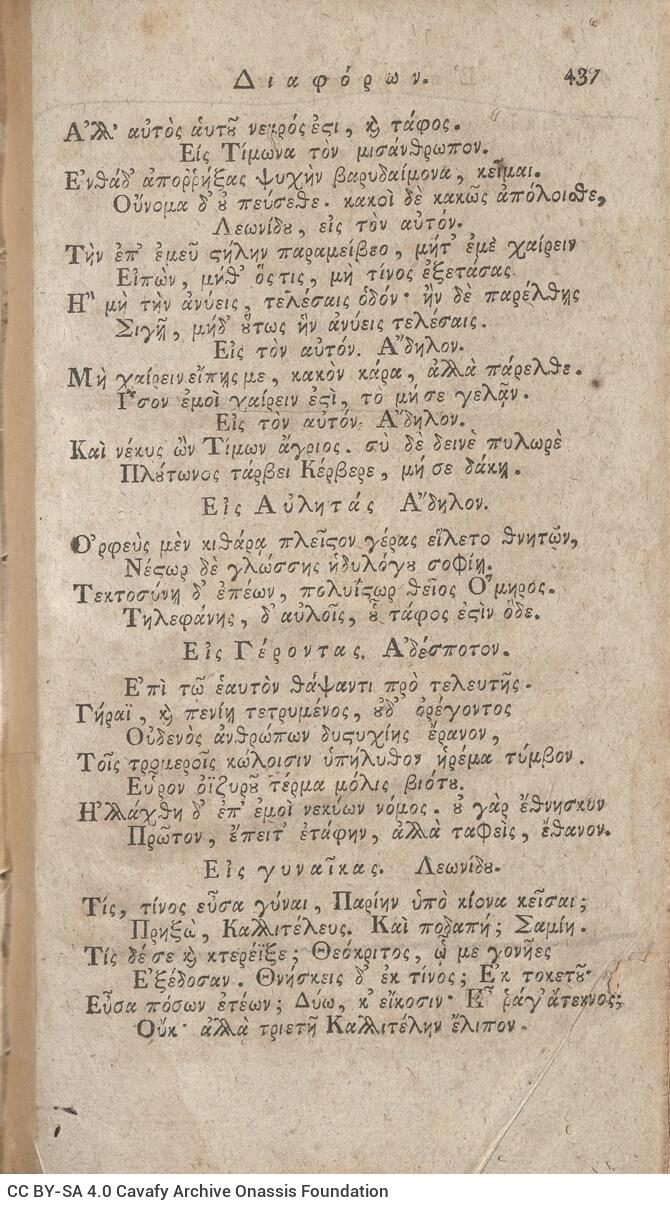 Διαφόρων. 437
Α᾿λλ' αὐτὸς αὑτοῦ νεκρός ἐϛι, ϗ τάφος.
Εἰς Τίμωνα τὸν μισάνθρωπον.
Ε᾿νθάδ' ἀποῤῥήξας ψυχὴν βαρυδαίμονα, κεῖμαι.
Οὔνομα δ' ȣ̓ πεύσεθε· κακοὶ δὲ κακῶς ἀπόλοισθε,
Λεωνίδȣ, εἰς τὸν αὐτόν.
Τὴν ἐπ' ἐμεῦ ϛήλην παραμείβεο, μήτ' ἐμὲ χαίρειν
Εἰπὼν, μήθ' ὅςτις, μὴ τίνος ἐξετάσας
Η῍ μὴ τὴν ἀνύεις, τελέσαις ὁδόν· ἢν δὲ παρέλθῃς
Σιγῇ, μήδ' ȣ̔́τως ἣν ἀνύεις τελέσαις.
Εἰς τὸν αὐτόν. Α῎δηλον.
Μὴ χαίρειν εἴπῃς με, κακὸν κάρα, ἀλλὰ πάρελθε.
Ι῏σον ἐμοὶ χαίρειν ἐϛὶ, τὸ μή σε γελᾷν.
Εἰς τὸν αὐτόν. Α῎δηλον.
Καὶ νέκυς ὢν Τίμων ἄγριος. σὺ δὲ δεινὲ πυλωρὲ
Πλȣ́τωνος τάρβει Κέρβερε, μή σε δάκῃ.
Εἰς Αὐλητάς Α῎δηλον.
Ο᾿ρφεὺς μὲν κιθάρᾳ πλεῖϛον γέρας εἵλετο θνητῶν,
Νέϛωρ δὲ γλώσσης ἡδυλόγȣ σοφίῃ.
Τεκτοσύνῃ δ' ἐπέων, πολυΐϛωρ θεῖος Ο῞μηρος.
Τηλεφάνης, δ' αὐλοῖς, ȣ̔͂ τάφος ἐϛὶν ὅδε.
Εἰς Γέροντας. Α᾿δέσποτον.
Ε᾿πὶ τῷ ἑαυτὸν θάψαντι πρὸ τελευτῆς.
Γήραϊ, ϗ πενίῃ τετρυμένος, ȣ̓δ' ὀρέγοντος
Οὐδενὸς ἀνθρώπων δυϛυχίης ἔρανον,
Τοῖς τρομεροῖς κώλοισιν ὑπήλυθον ἠρέμα τύμβον.
Εὗρον ὀϊζυρȣ͂ τέρμα μόλις βιότȣ.
Η᾿λλάχθη δ' ἐπ' ἐμοὶ νεκύων νόμος. ȣ̓ γὰρ ἔθνησκον
Πρῶτον, ἔπειτ' ἐτάφην, ἀλλὰ ταφεὶς, ἔθανον.
Εἰς γυναῖκας. Λεωνίδȣ.
Τίς, τίνος εὖσα γύναι, Παρίην ὑπὸ κίονα κεῖσαι;
Πρηξὼ, Καλλιτέλευς. Καὶ ποδαπή; Σαμίη.
Τίς δέ σε ϗ κτερέϊξε; Θεόκριτος, ᾧ με γονῆες
Ε᾿ξέδοσαν. Θνήσκεις δ' ἐκ τίνος; Ε᾿κ τοκετȣ͂·
Εὖσα πόσων ἐτέων; Δύω, κ' εἴκοσιν· ἄτεκνος;
Οὔκ· ἀλλὰ τριετῆ Καλλιτέλην ἔλιπον.
CC BY-SA 4.0 Cavafy Archive Onassis Foundation